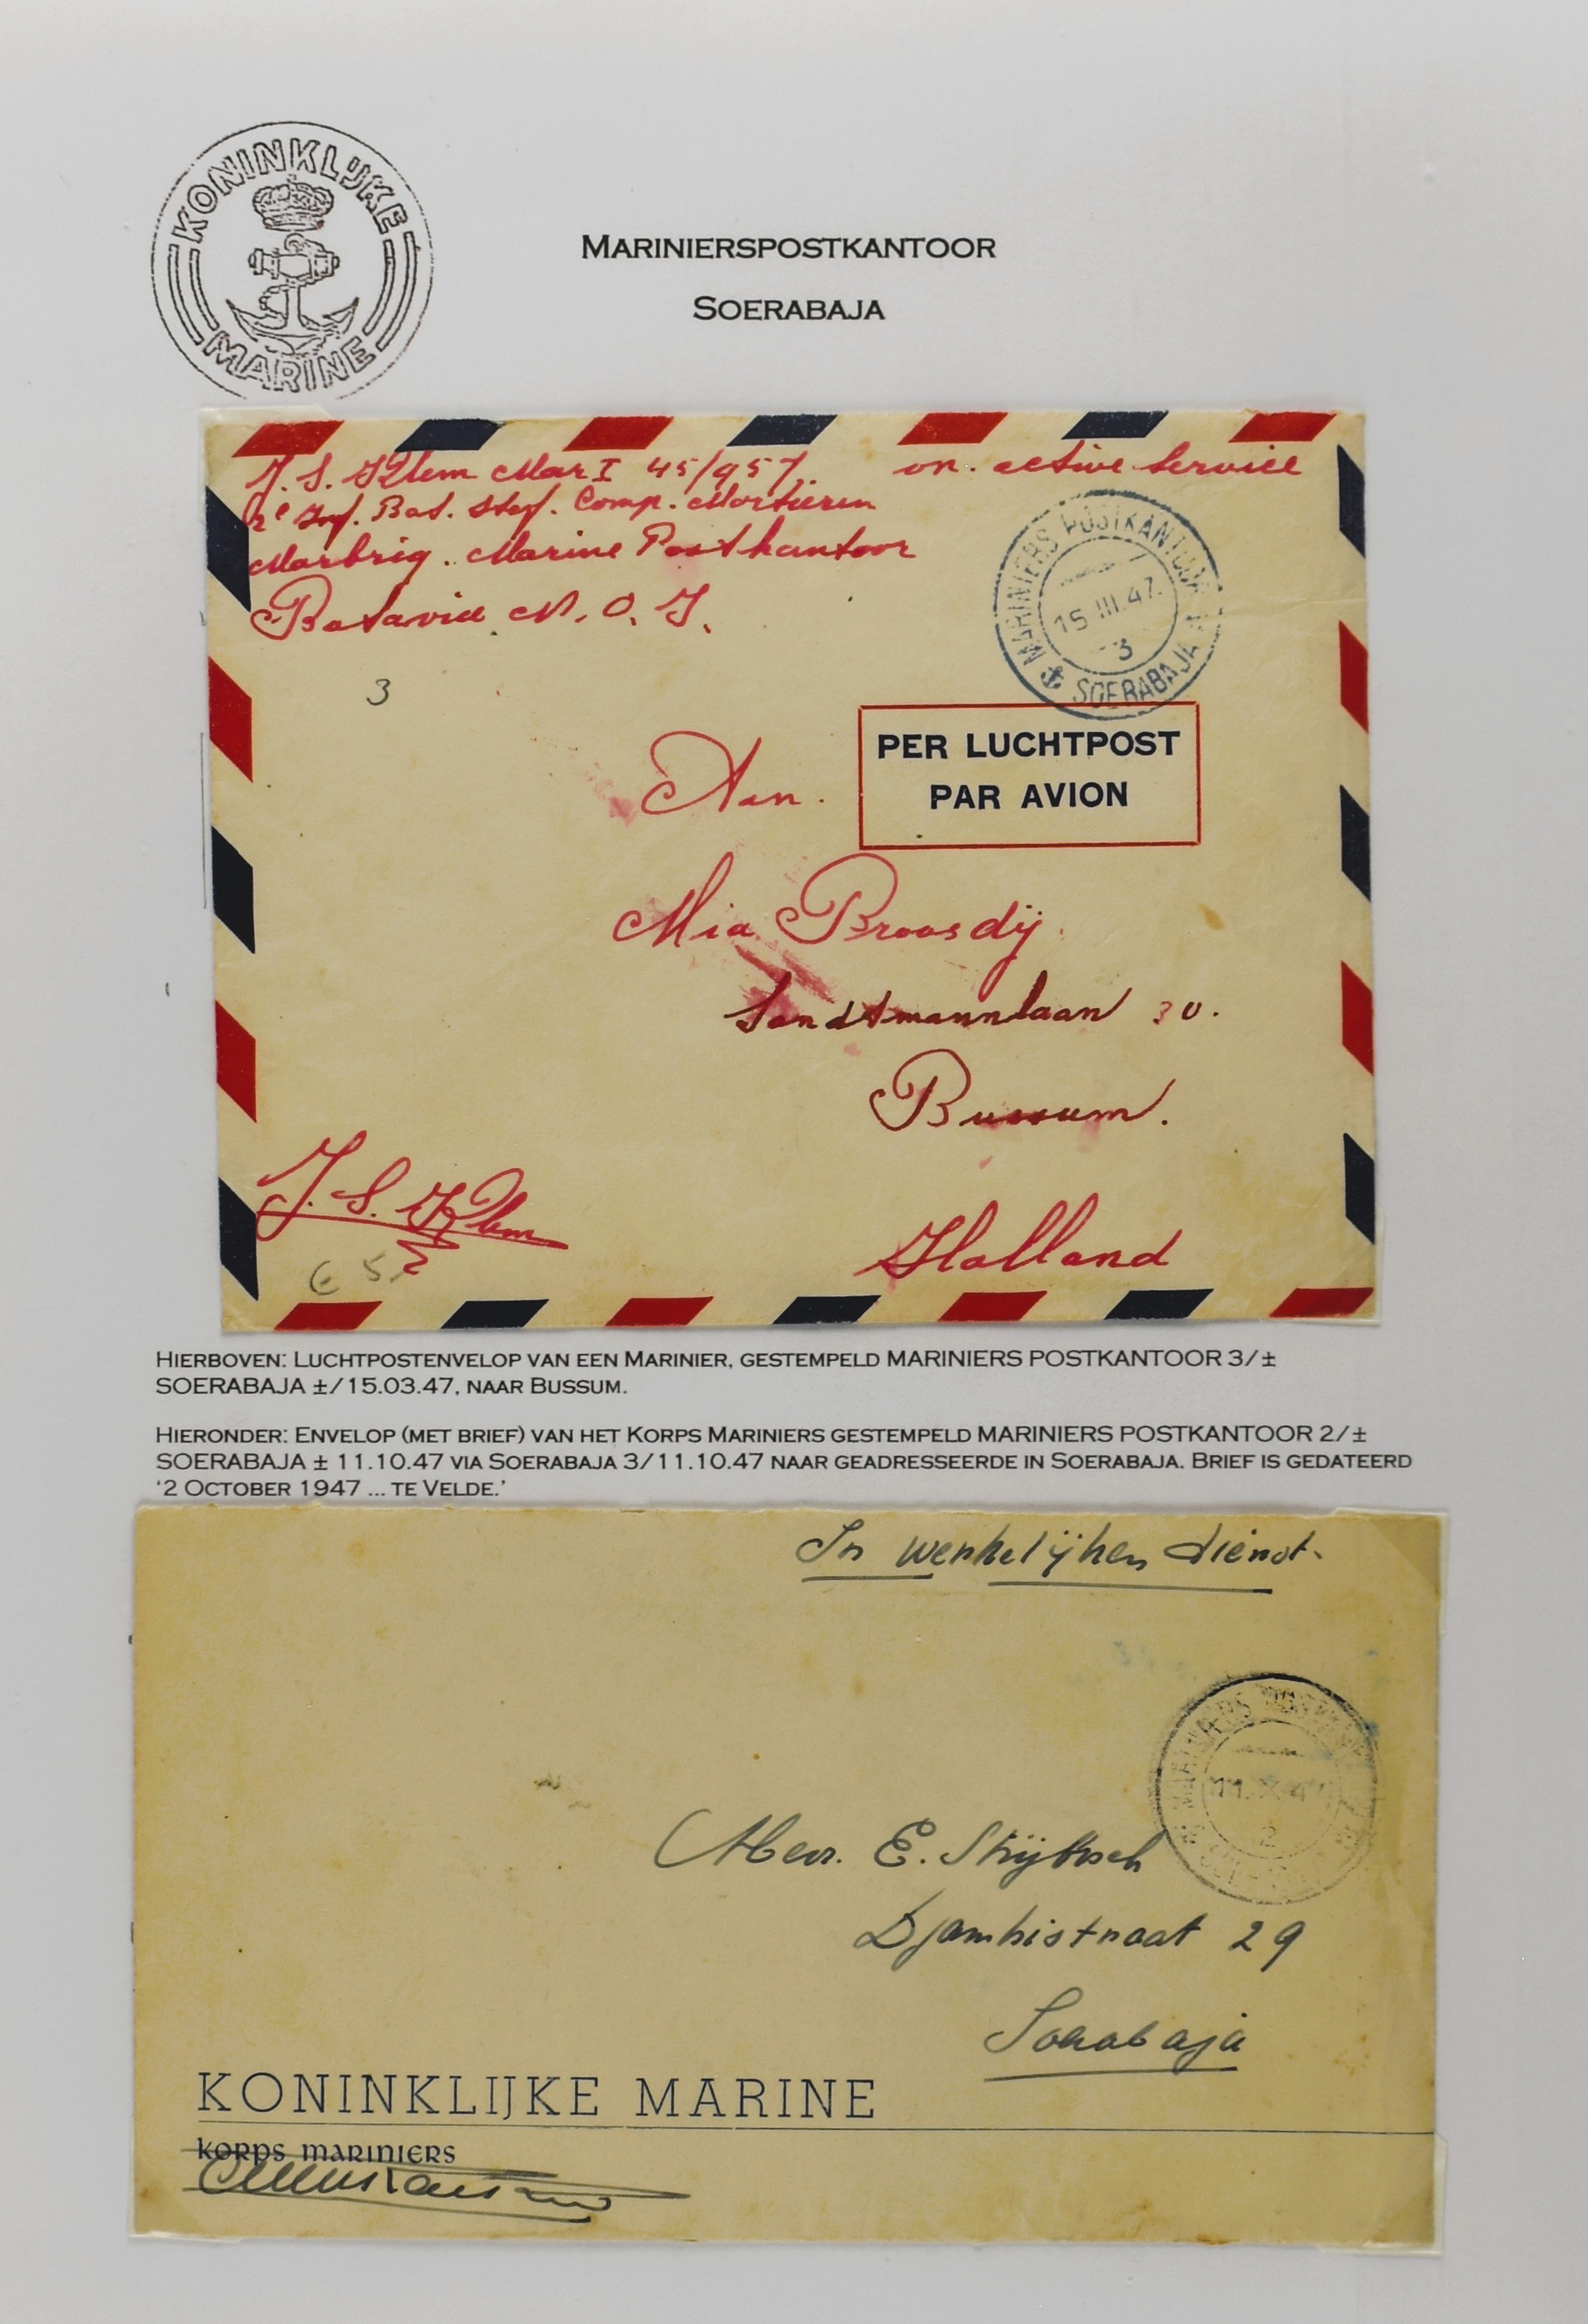 KONINKLIJKE
MARINE
MARINIERSPOSTKANTOOR
SOERABAJA
J. S. Mar I 45/957. on active service
2e Inf. Bat. Staf. Comp. Mortieren
Marbrig. Marine Postkantoor
Batavia N. O. I.
MARINIERS POSTKANTOOR
15 III.47.
3
SOERABAJA
3
PER LUCHTPOST
PAR AVION
Aan.
Mia Broosdij
Sandtmannlaan 30.
Bussum.
J. S.
€ 5,
Holland
HIERBOVEN: LUCHTPOSTENVELOP VAN EEN MARINIER, GESTEMPELD MARINIERS POSTKANTOOR 3/±
SOERABAJA ±/15.03.47, NAAR BUSSUM.
HIERONDER: ENVELOP (MET BRIEF) VAN HET KORPS MARINIERS GESTEMPELD MARINIERS POSTKANTOOR 2/±
SOERABAJA ± 11.10.47 VIA SOERABAJA 3/11.10.47 NAAR GEADRESSEERDE IN SOERABAJA. BRIEF IS GEDATEERD
'2 OCTOBER 1947 ... TE VELDE.'
In werkelijken dienst.
MARINIERS
11.X.47
2
Mevr. E.
Djambistraat 29
Soerabaja
KONINKLIJKE MARINE
KORPS MARINIERS